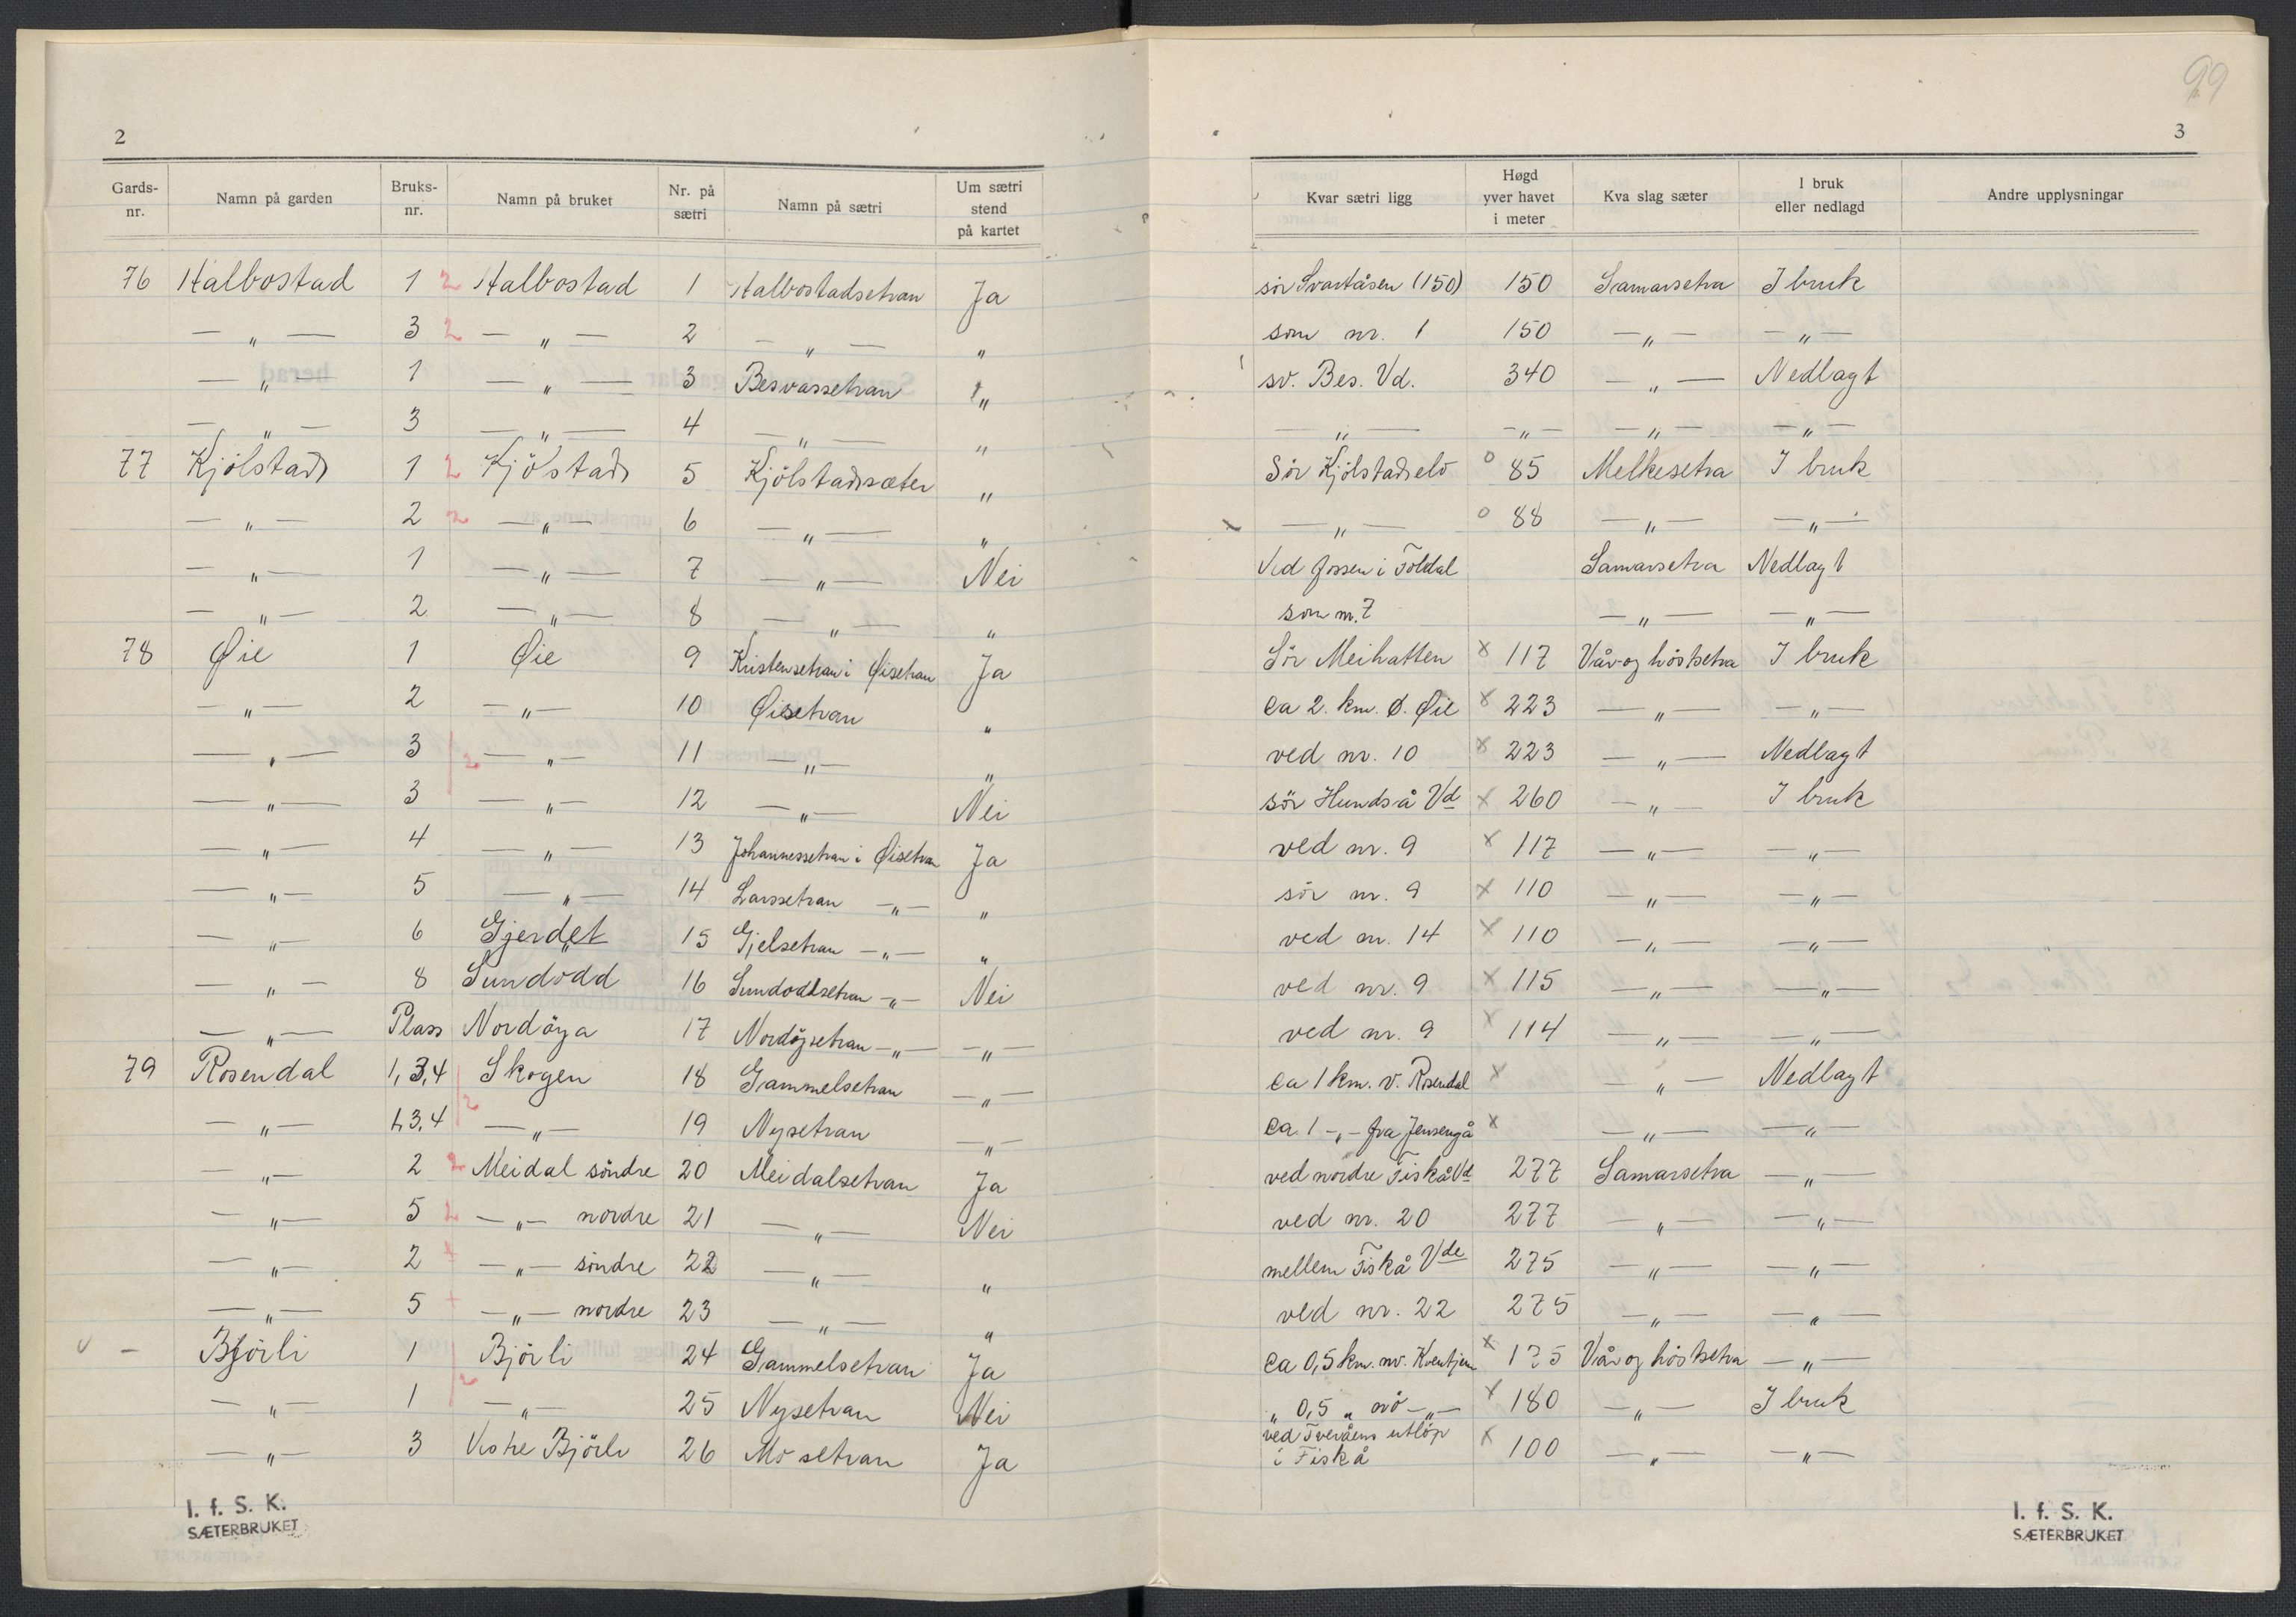 99
2
Gards-nr. Namn på garden Bruks-nr. Namn på bruket Nr. på sætri Namn på sætri Um sætri stend på kartet
76 Halbostad 1 2 Halbostad 1 Halbostadsetran Ja
— „ — 3 2 — „ — 2 — „ — „
— „ — 1 — „ — 3 Besvassetran „
— „ — 3 — „ — 4 — „ — „
77 Kjölstad 1 2 Kjölstad 5 Kjölstadsæter „
— „ — 2 2 — „ — 6 — „ — „
— „ — 1 — „ — 7 — „ — Nei
— „ — 2 — „ — 8 — „ — „
78 Øie 1 Øie 9 Kristensetran i Øisetran Ja
— „ — 2 — „ — 10 Øisetran „
— „ — 3 2 — „ — 11 — „ — „
— „ — 3 — „ — 12 — „ — Nei
— „ — 4 — „ — 13 Johannessetran i Øisetran Ja
— „ — 5 — „ — 14 Larssetran — „ — „
— „ — 6 Gjerdet 15 Gjelsetran — „ — „
— „ — 8 Sundodd 16 Sundoddsetran — „ — Nei
— „ — Plass Nordöya 17 Nordöjsetran — „ — — „ —
79 Rosendal 1, 3, 4 Skogen 18 Gammelsetran — „ —
— „ — 1, 3, 4 2 — „ — 19 Nysetran — „ —
— „ — 2 2 Meidal söndre 20 Meidalsetran Ja
— „ — 5 2 — „ — nordre 21 — „ — Nei
— „ — 2 + — „ — söndre 22 — „ — „
— „ — 5 + — „ — nordre 23 — „ — „
v — Björli 1 Björli 24 Gammelsetran Ja
— „ — 1 2 — „ — 25 Nysetran Nei
— „ — 3 Vestre Björli 26 Mosetran Ja
I. f. S. K.
SÆTERBRUKET
3
Kvar sætri ligg Høgd yver havet i meter Kva slag sæter I bruk eller nedlagd Andre upplysningar
sör Svartåsen (150) 150 Samarsetra I bruk
som nr. 1 150 — „ — — „ —
sv. Bes. Vd. 340 — „ — Nedlagt
— „ — — „ — — „ — — „ —
Sör Kjölstadelv o 85 Melkesetra I bruk
— „ — o 88 — „ — — „ —
Ved fossen i Toldal Samarsetra Nedlagt
som nr. 7 — „ — — „ —
Sör Meihatten x 117 Vår og höstsetra I bruk
ca 2. km. Ø. Øie x 223 — „ — — „ —
ved nr. 10 x 223 — „ — Nedlagt
sör Hundså Vd x 260 — „ — I bruk
ved nr. 9 x 117 — „ — — „ —
sör nr. 9 x 110 — „ — — „ —
ved nr. 14 x 110 — „ — — „ —
ved nr. 9 x 115 — „ — — „ —
ved nr. 9 x 114 — „ — — „ —
ca 1 km. v. Rosendal x — „ — Nedlagt
ca. 1 — „ — fra Jensengå x — „ — — „ —
ved nordre Fiskå Vd 277 Samarsetra — „ —
ved nr. 20 277 — „ — — „ —
mellem Fiskå Vde 275 — „ — — „ —
ved nr. 22 275 — „ — — „ —
ca 0,5 km. nv. Kventjern x 175 Vår og höstsetra — „ —
„ 0,5 „ nö — „ — x 180 — „ — I bruk
ved Tveråens utlöp
i Fiskå x 100 — „ — — „ —
I. f. S. K.
SÆTERBRUKET